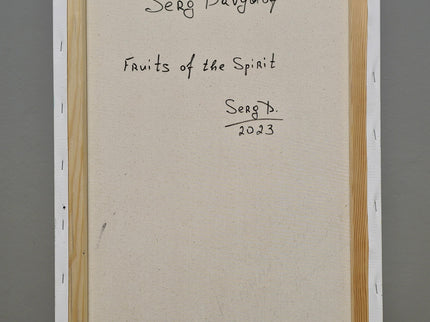 Serg
Fruits of the Spirit
Serg D.
2023